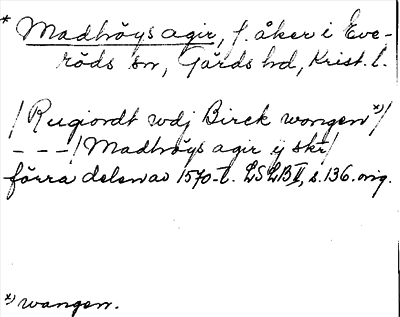 * Madhöys agir, f. åker i Eve-
röds sn, Gärds hd, Krist. l.
/ Rugiordt wdj Birck wongen *) /
– – – / Madhöys agir ij skr /
förra delen av 1570-t. LSLB II, s. 136. orig.
*) wangen.